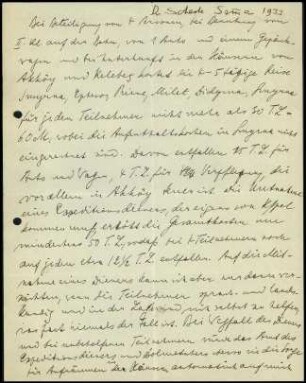 Bei Beteiligung von 4 Personen, bei Benutzung von
II. Kl. auf der Bahn, von 1 Auto und einem Gepäck-
wagen und bei Unterkunft in den Häusern von
Akköj und Kelebesch kostet die 4-5 tägige Reise
Smyrna, Ephesos, Priene, Milet, Didyma, Smyrna
für jeden Teilnehmer nicht mehr als 30 TL =
60 M, wobei die Aufenthaltskosten in Smyrna nicht
eingerechnet sind. Davon entfallen 15 T.L. für
Auto und Wagen, 4 T.L. für Verpflegung, die
vor allem in Akköj teuer ist. Die Mitnahme
eines Expeditionsdieners, der eigens von
kommen muß erhöht die Gesamtkosten um
mindestens 50 T.L., sodaß bei 4 Teilnehmern noch
auf jeden etwa 12½ T.L. entfallen. Auf die Mit-
nahme eines Dieners kann ich aber nur dann ver-
zichten, wenn die Teilnehmer sprach- und landes-
kundig und in der Lage sind sich selbst zu helfen,
was fast niemals der Fall ist. Bei Wegfall des Dieners
und bei
Expeditionsdieners und
für Aufräumen der Häuser